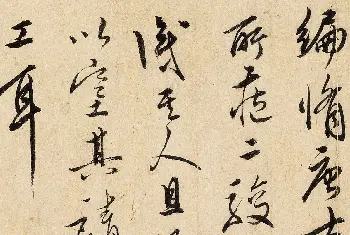 編脩唐
所藏二駿
識其人且
以塞其請
工耳